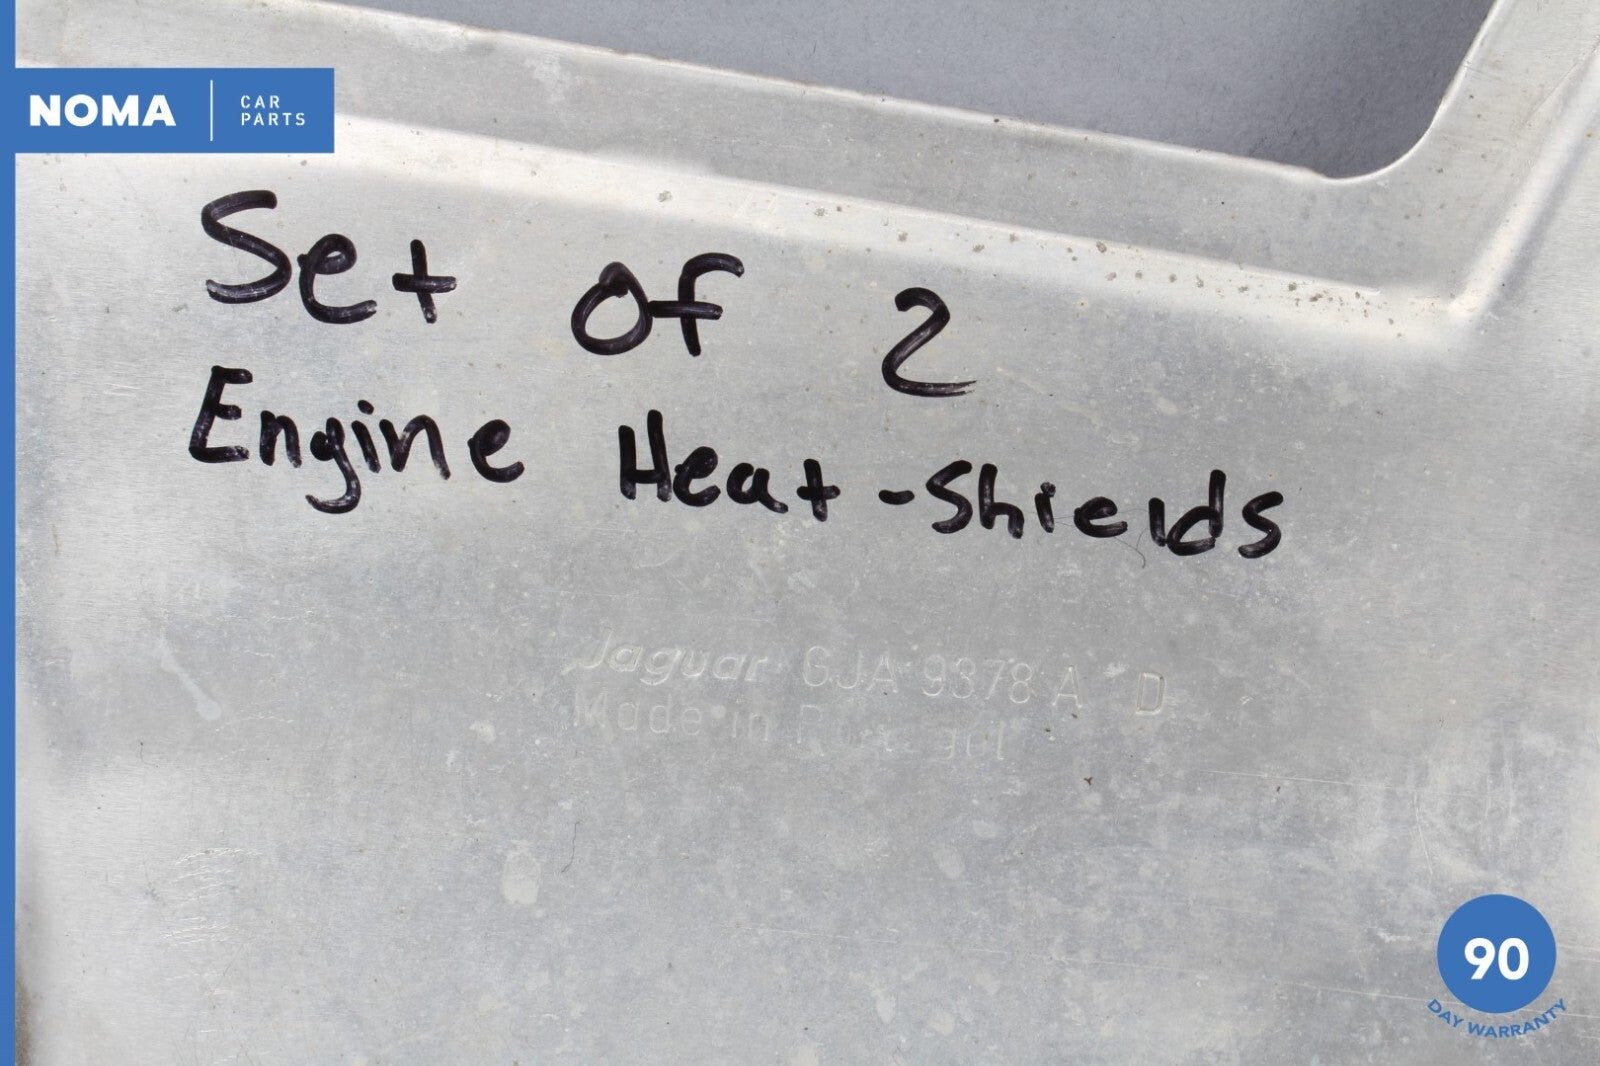 NOMA
CAR
PARTS
Set of 2
Engine Heat-Shields
Jaguar GJA 9378 A D
Made in Portugal
90
DAY WARRANTY